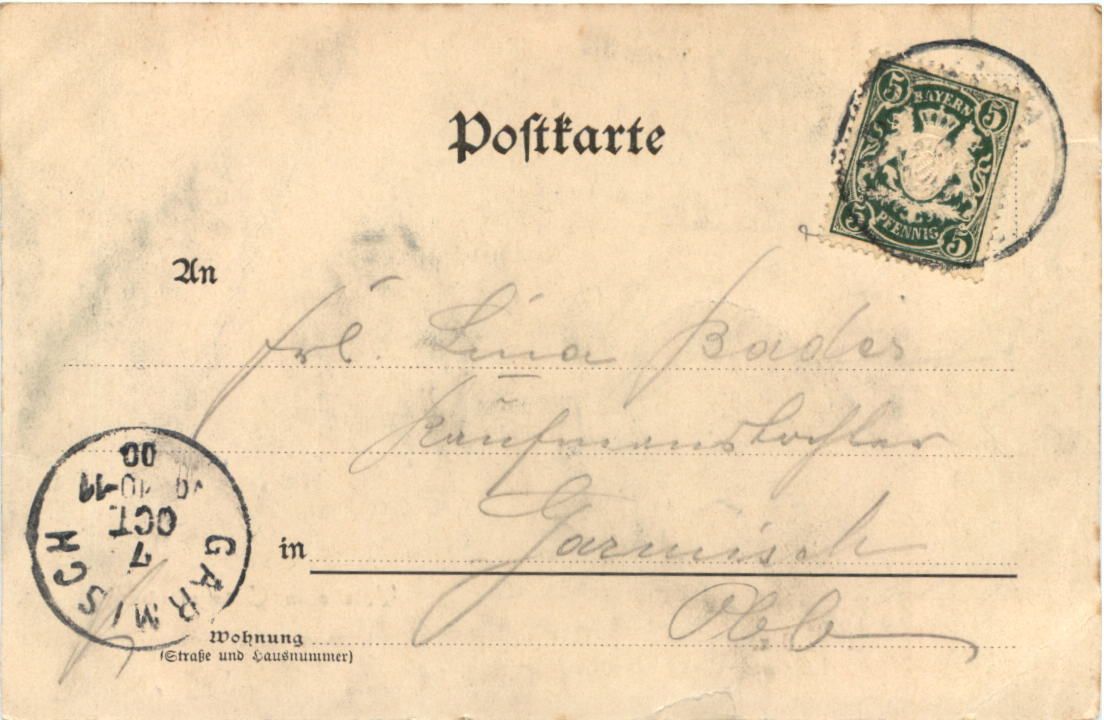 Postkarte
5 BAYERN 5
5 PFENNIG 5
An
Frl. Lina Bader
Kaufmanstochter
in Garmisch
Obb
Wohnung
(Straße und Hausnummer)
GARMISCH
7
OCT.
10-11
00